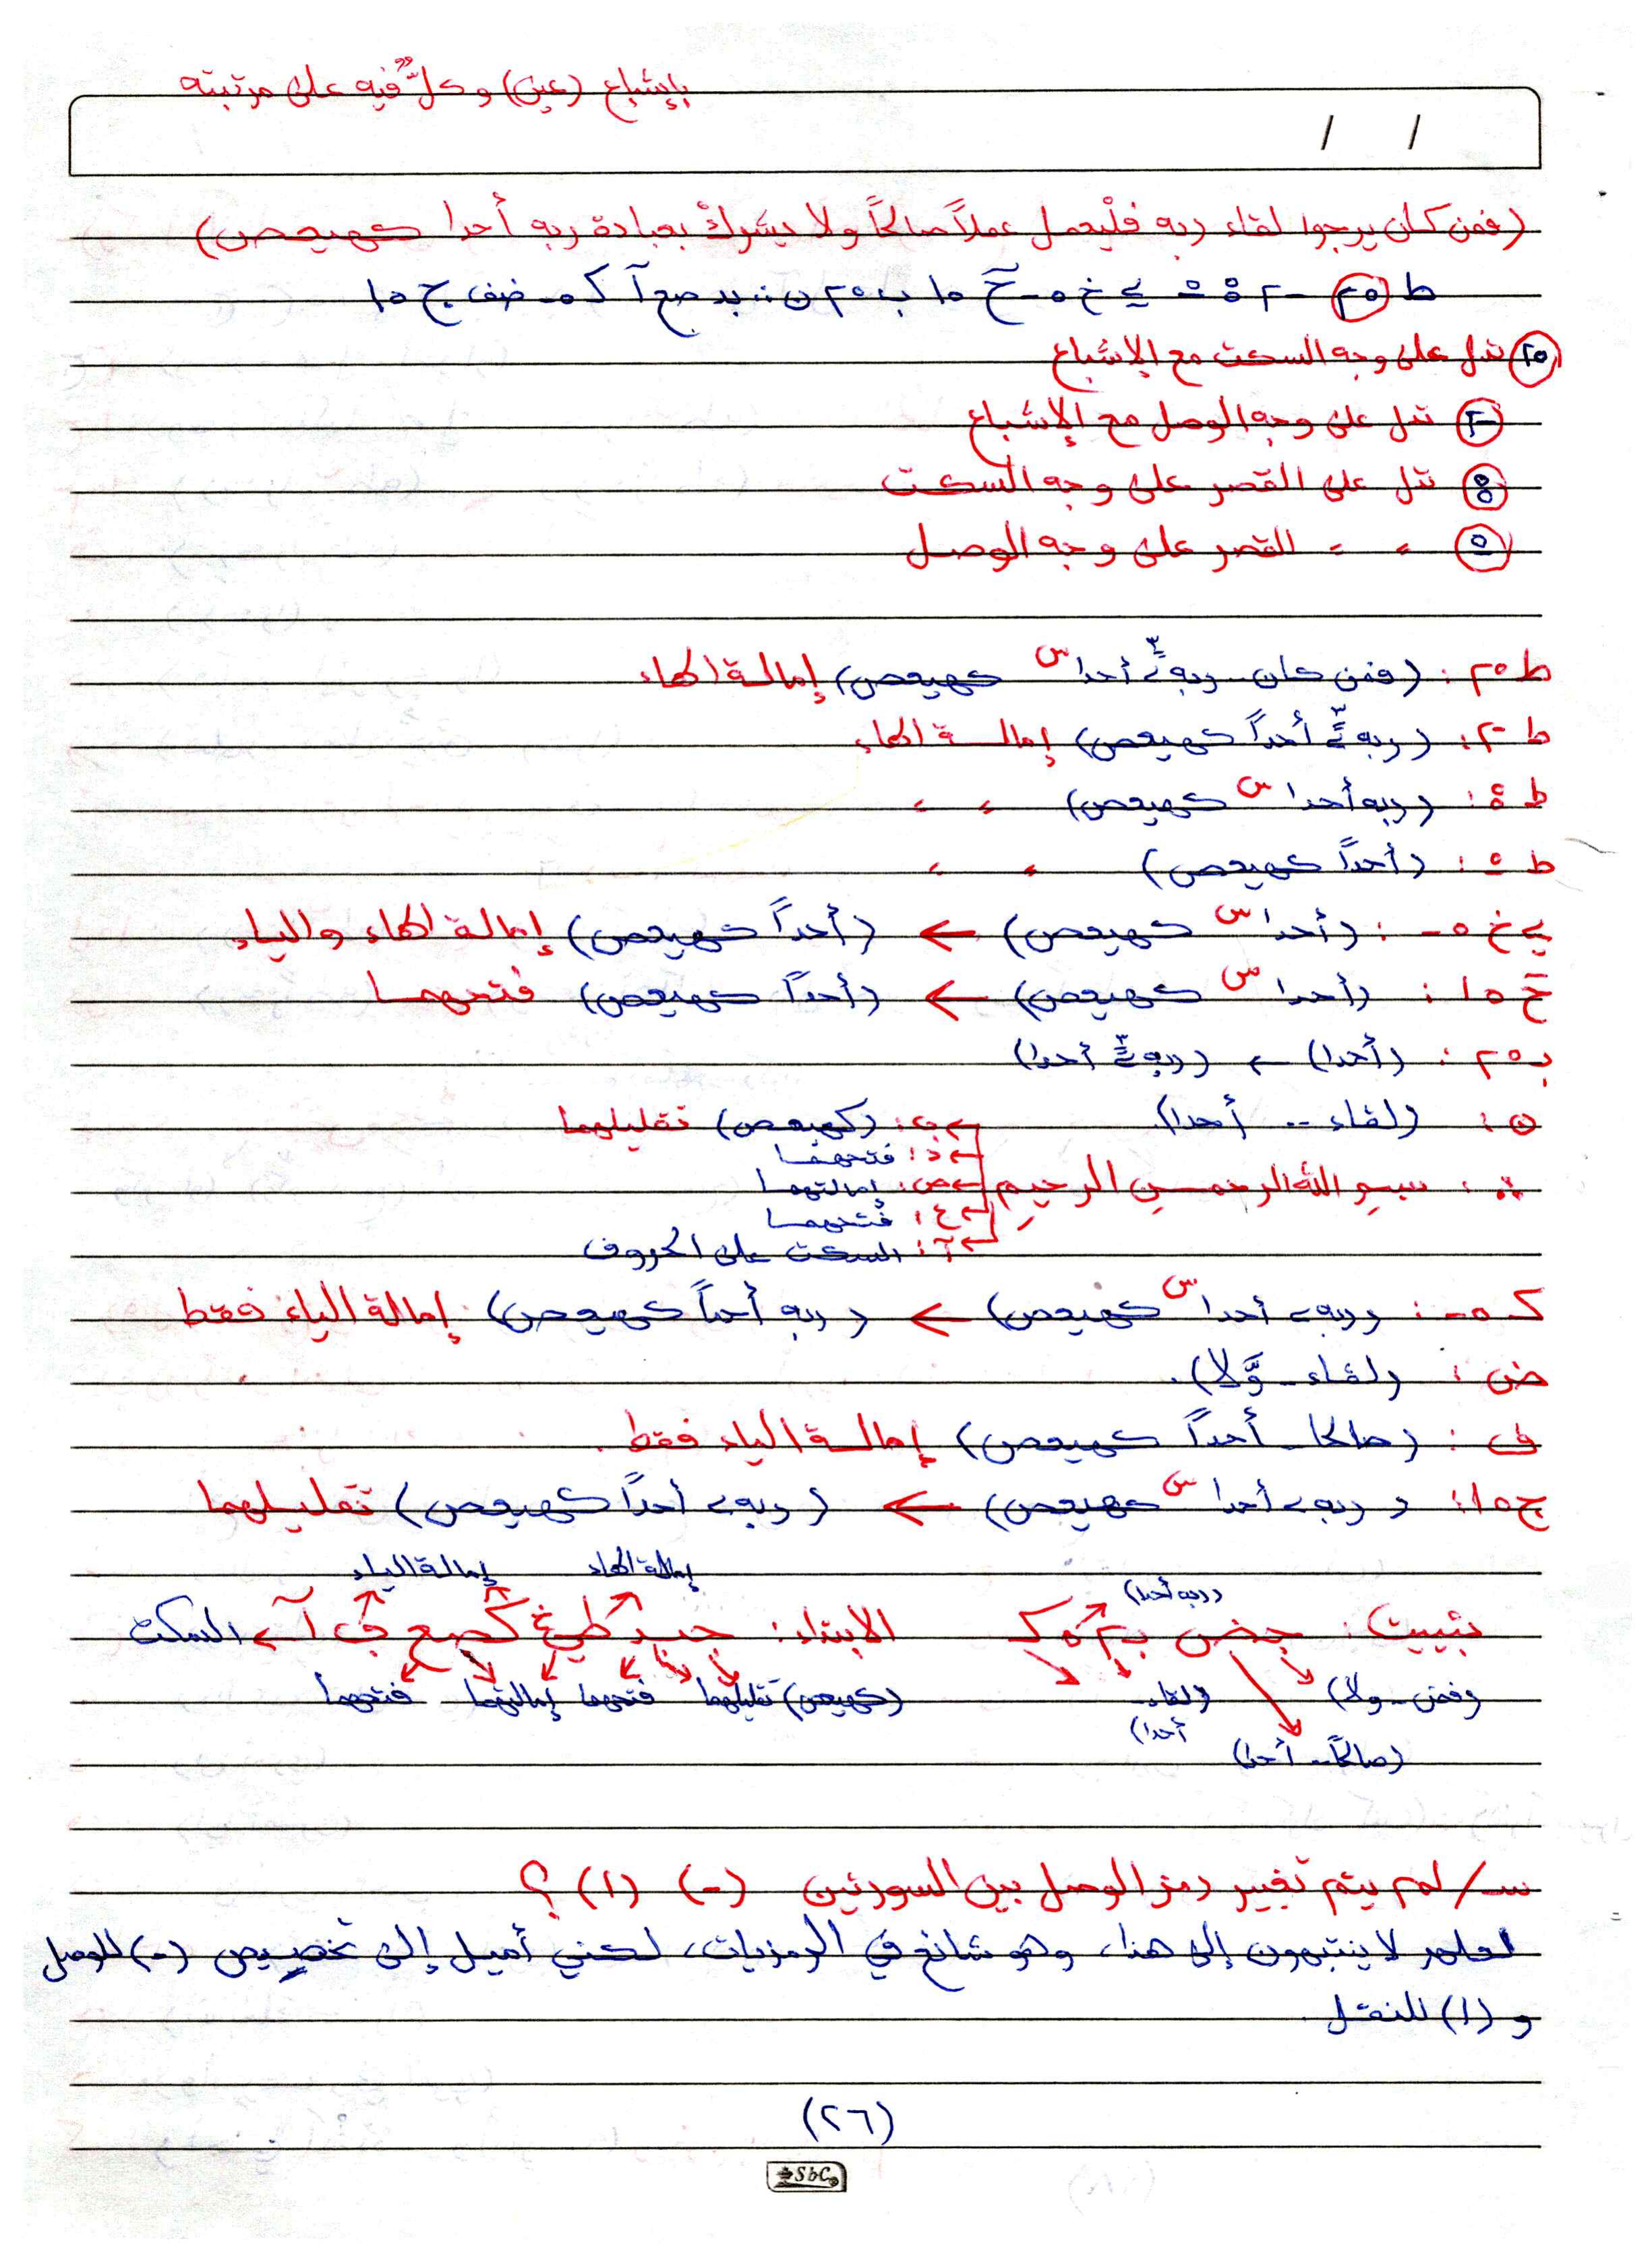 بإشباع (عين) وكلٌّ فيه على مرتبته
/ /
(فمن كان يرجوا لقاء ربه فلْيعمل عملاً صالحاً ولا يشركْ بعبادة ربه أحدا كهيعص)
٢٥ تدل على وجه السكت مع الإشباع
٢- تدل على وجه الوصل مع الإشباع
تدل على القصر على وجه السكت
" " القصر على وجه الوصل
ط ٢٥ : (فمن كان - ربه أحدا س كهيعص) إمالة الهاء
ط ٢- : (ربه أحداً كهيعص) إمالة الهاء
ط : (ربه أحدا س كهيعص) " "
ط : (أحداً كهيعص) " "
ي خ ٥ - : (أحدا س كهيعص) ← (أحداً كهيعص) إمالة الهاء والياء
خ ١٥ : (أحدا س كهيعص) ← (أحداً كهيعص) فتحهما
ب ٢٥ : (أحدا) ← (ربه أحدا)
ن : (لقاء .. أحدا)
ب : (كهيعص) تقليلهما
د : فتحهما
بسم الله الرحمن الرحيم
ص : إمالتهما
ع : فتحهما
آ : السكت على الحروف
ك ٥ - : (ربه أحدا س كهيعص) ← (ربه أحداً كهيعص) إمالة الياء فقط
ض : (لقاء - وَّلا).
ف : (صالحا - أحداً كهيعص) إمالة الياء فقط.
ج ١٥ : (ربه أحدا س كهيعص) ← (ربه أحداً كهيعص) تقليلهما
(ربه أحدا) إمالة الهاء إمالة الياء
تثبيت : الابتداء : آ ← السكت
(فمن - ولا) (لقاء - أحدا) (كهيعص) تقليلهما فتحهما إمالتهما فتحهما
(صالحاً - أحدا)
س/ لم يتم تغيير رمز الوصل بين السورتين (-) (١) ؟
لعلهم لا ينتبهون إلى هذا، وهو شائع في الرمزيات، لكني أميل إلى تخصيص (-) للوصل
و (١) للنقل.
(٢٦)
SbC